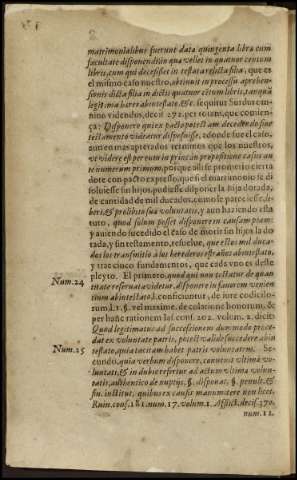 matrimonialibus fuerunt data quingenta libra cum
facultate disponendi in qua vellet in quatuor centum
libris, cum qui decesisset in testata relicta filia, que es
el mismo caso nuestro, obtinuit in processu aprehen
sionis dicta filia in dictis quatuor cẽtum libris, tanquã
legitima hæres abintestato. &c. sequitur Surdus com-
mino videndus, decis. 272. per totum, que comien-
ça: Disponere qui ex pacto potest
testamento videatur disposuisse,
te videre est per totum in
numerum primum, porque allise propuso cierta
dote con pacto expresso, que si el matrimonio se di
soluiesse sin hijos, pudiesse disponer la hija dorada,
de cantidad de mil ducados, como le pareciesse, li-
berè, & pro libito suæ voluntatis, y aun haziendo esta
tuto, quod solum posset disponere in causam piam:
y auiendo sucedido el caso de morir sin hijos la do
tada, y sin testamento, resuelue, que estos mil duca-
dos los transmitio à sus herederos estraños abintestato,
y trae cinco fundamentos, que cada vno es deste
pleyto. El primero, quod qui non testatur de quan
titate reseruata videtur, disponere in fauorem venien
tium abintestato. l. conficiuntur, de iure codicillo-
rum. l. 1. §. vel maxime, de colatione bonorum, &
per hanc rationem Iaf. conf. 202. volum. 2. dicit:
Quod legitimatus ad successionem dummodo proce-
dat ex voluntate patris, potest valide succedere abin
testato, quia tacitam habet patris voluntatem. Se-
condo, quia verbum disponere, convenit vltimæ vo-
luntati, & in dubio refertur ad actum vltimæ volun-
tatis, authentico de nuptijs. §. disponat, §. penult. &
fin. institut. quibus ex causis manumittere non licet.
Ruin. conf. 181. num. 17. volum. 1. Afflict. decis. 370.
num. 11.
Num. 24
Num. 25